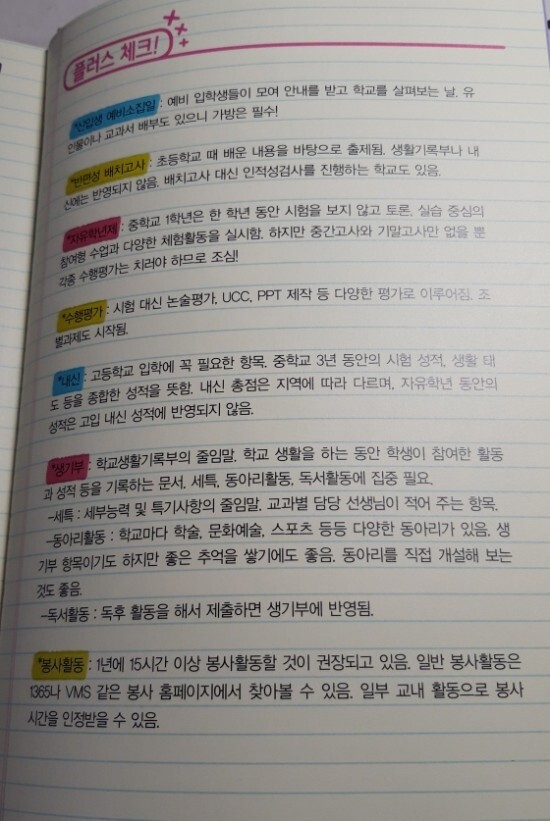 플러스 체크!
*신입생 예비소집일 : 예비 입학생들이 모여 안내를 받고 학교를 살펴보는 날. 유
인물이나 교과서 배부도 있으니 가방은 필수!
*반편성 배치고사 : 초등학교 때 배운 내용을 바탕으로 출제됨. 생활기록부나 내
신에는 반영되지 않음. 배치고사 대신 인적성검사를 진행하는 학교도 있음.
*자유학년제 : 중학교 1학년은 한 학년 동안 시험을 보지 않고 토론, 실습 중심의
참여형 수업과 다양한 체험활동을 실시함. 하지만 중간고사와 기말고사만 없을 뿐
각종 수행평가는 치러야 하므로 조심!
*수행평가 : 시험 대신 논술평가, UCC, PPT 제작 등 다양한 평가로 이루어짐. 조
별과제도 시작됨.
*내신 : 고등학교 입학에 꼭 필요한 항목. 중학교 3년 동안의 시험 성적, 생활 태
도 등을 종합한 성적을 뜻함. 내신 총점은 지역에 따라 다르며, 자유학년 동안의
성적은 고입 내신 성적에 반영되지 않음.
*생기부 : 학교생활기록부의 줄임말. 학교 생활을 하는 동안 학생이 참여한 활동
과 성적 등을 기록하는 문서. 세특, 동아리활동, 독서활동에 집중 필요.
-세특 : 세부능력 및 특기사항의 줄임말. 교과별 담당 선생님이 적어 주는 항목.
-동아리활동 : 학교마다 학술, 문화예술, 스포츠 등등 다양한 동아리가 있음. 생
기부 항목이기도 하지만 좋은 추억을 쌓기에도 좋음. 동아리를 직접 개설해 보는
것도 좋음.
-독서활동 : 독후 활동을 해서 제출하면 생기부에 반영됨.
*봉사활동 : 1년에 15시간 이상 봉사활동할 것이 권장되고 있음. 일반 봉사활동은
1365나 VMS 같은 봉사 홈페이지에서 찾아볼 수 있음. 일부 교내 활동으로 봉사
시간을 인정받을 수 있음.